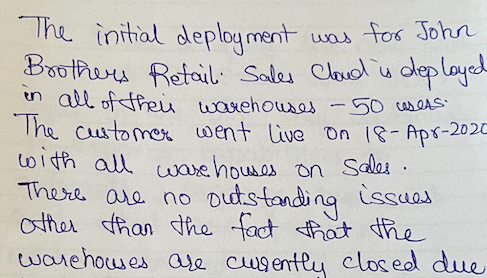 The initial deployment was for John
Brothers Retail. Sales Cloud is deployed
in all of their warehouses - 50 users.
The customer went live on 18-Apr-2020
with all warehouses on Sales.
There are no outstanding issues
other than the fact that the
warehouses are currently closed due